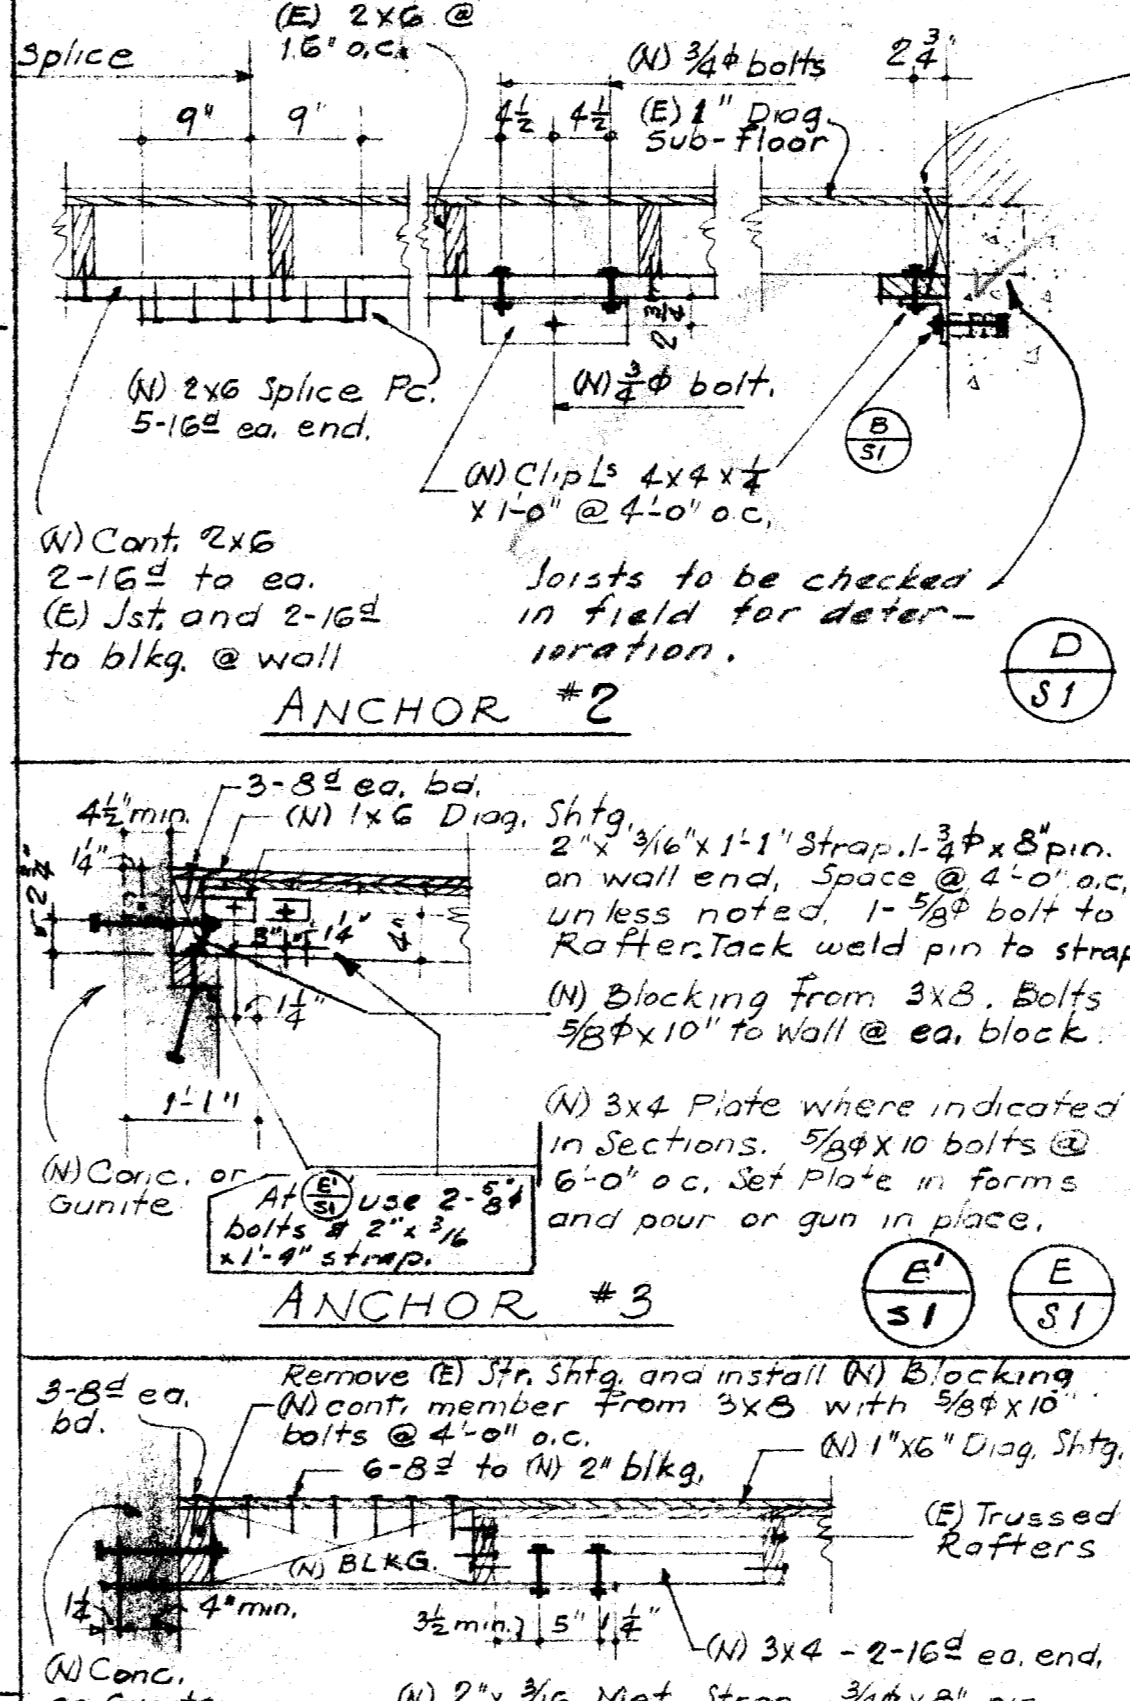 (E) 2x6 @
16" o.c.
Splice
(N) 3/4 ϕ bolts
2 3/4"
9"
9"
4 1/2
4 1/2
(E) 1" Diag.
Sub-floor
2 3/4
(N) 2x6 Splice Pc.
5-16d ea. end.
(N) 3/4 ϕ bolt.
B
S1
(N) Clip Ls 4x4x1/4
x 1'-0" @ 4'-0" o.c.
(N) Cont. 2x6
2-16d to ea.
(E) Jst. and 2-16d
to blkg. @ wall
Joists to be checked
in field for deter-
ioration.
D
S1
ANCHOR #2
3-8d ea. bd.
4 1/2" min.
(N) 1x6 Diag. Shtg.
1/4"
2"x 3/16"x 1'-1" Strap. 1-3/4 ϕ x 8" pin.
on wall end, Space @ 4'-0" o.c.
unless noted, 1- 5/8 ϕ bolt to
Rafter. Tack weld pin to strap
3"
1 1/4"
4"
1 1/4"
(N) Blocking from 3x8. Bolts
5/8 ϕ x 10" to Wall @ ea. block.
1'-1"
(N) 3x4 Plate where indicated
in Sections. 5/8 ϕ x 10 bolts @
6'-0" o.c. Set Plate in forms
and pour or gun in place.
(N) Conc. or
Gunite
At E'/S1 use 2-5/8" ϕ
bolts & 2" x 3/16
x 1'-4" strap.
E'
S1
E
S1
ANCHOR #3
3-8d ea.
bd.
Remove (E) Str. Shtg. and install (N) Blocking
(N) cont. member from 3x8 with 5/8 ϕ x 10"
bolts @ 4'-0" o.c.
(N) 1"x6" Diag. Shtg.
6-8d to (N) 2" blkg.
(E) Trussed
Rafters
(N) BLKG.
1 1/4
4" min.
3 1/2 min.
5"
1 1/4"
(N) 3x4 - 2-16d ea. end.
(N) Conc.
or Gunite
(N) 2"x 3/16 Met. Strap 3/4 ϕ x 8" pin